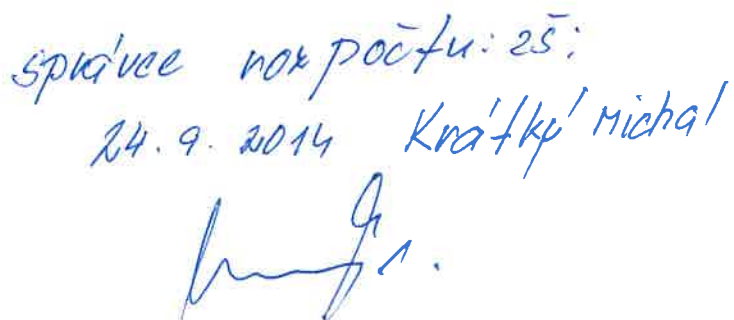 správce rozpočtu: ZŠ:
24. 9. 2014 Krátký Michal